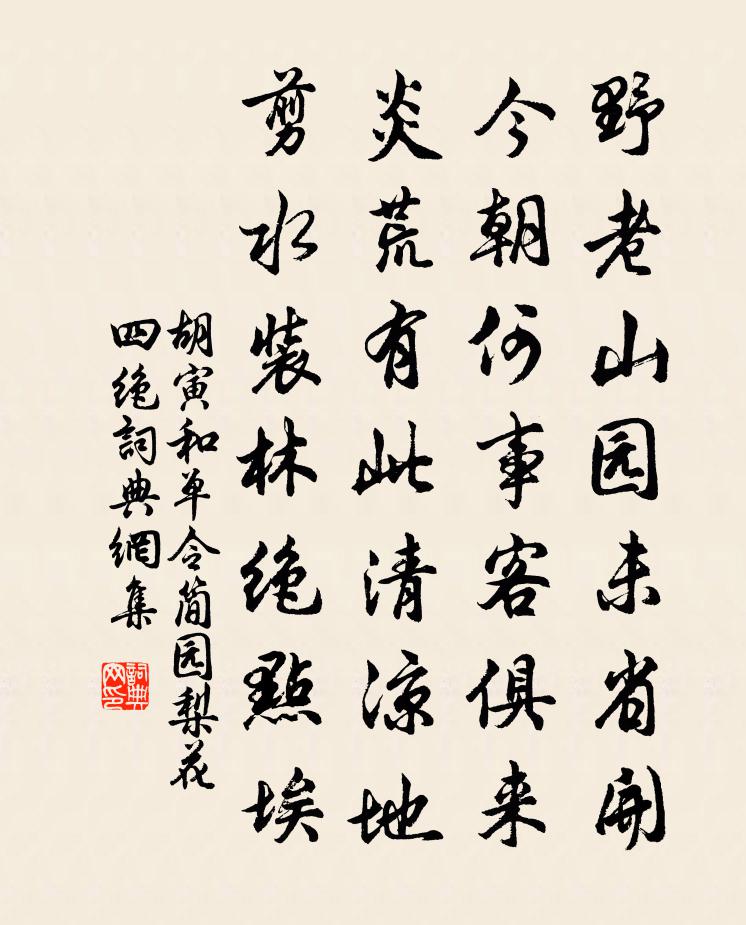 野老山园未省開
今朝何事客俱来
炎荒有此清凉地
剪水装林绝點埃
胡寅和单令简园梨花
四绝詞典網集
詞典
网印